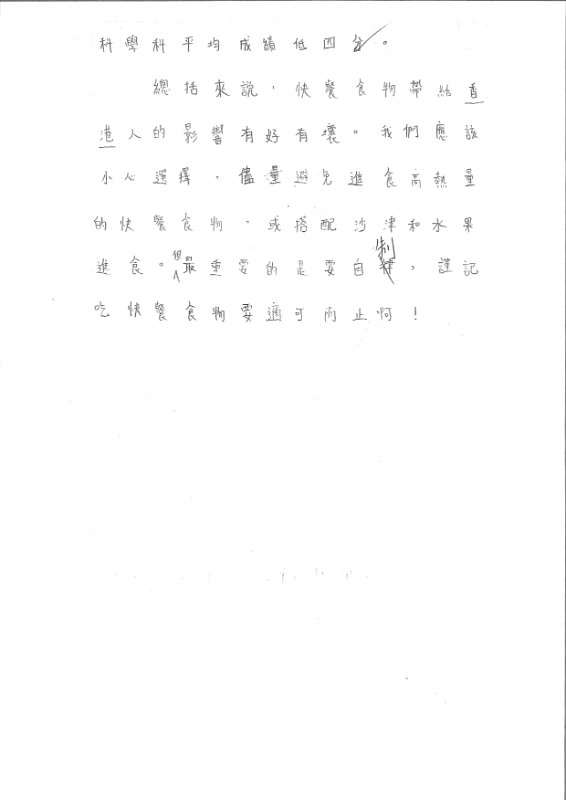 科學科平均成績低四分。
總括來說，快餐食物帶給香
港人的影響有好有壞。我們應該
小心選擇，儘量避免進食高熱量
的快餐食物，或搭配沙津和水果
進食。但最重要的是要自制，謹記
吃快餐食物要適可而止啊！